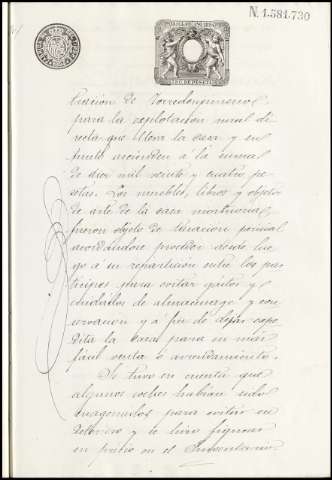 N. 1.581.730
cación de Torredonjimeno
para la explotación rural di
recta que lleva la casa y su
fruto ascienden á la suma
de dos mil veinte y cuatro pe
setas. Los muebles, libros y objetos
de arte de la casa mortuoria
fueron objeto de tasación pericial
acordándose proceder desde lue
go á su repartición entre los par
tícipes para evitar gastos y
cuidados de almacenage y con
servación y á fin de dejar expe
dita la casa para su más
fácil venta o arrendamiento.
Se tuvo en cuenta que
algunos coches habían sido
enagenados para evitar su
deterioro y se hizo figurar
su precio en el Inventario